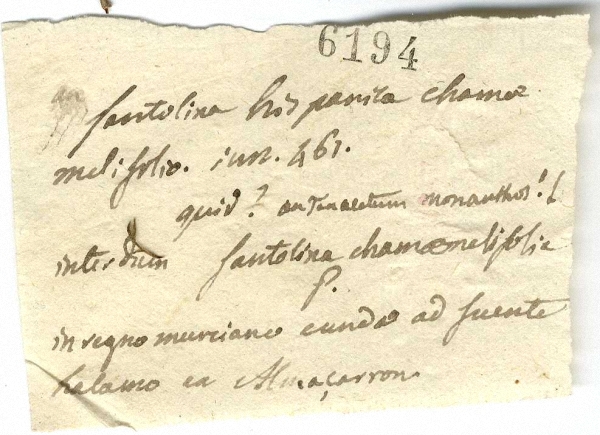 6194
Santolina hispanica chamoe
melifolio. iun. 461.
quid? an tanacetum monanthos! L
interdum Santolina chamoemelifolia
P.
in regno murciano eundo ad fuente
halamo ea Almaçarron